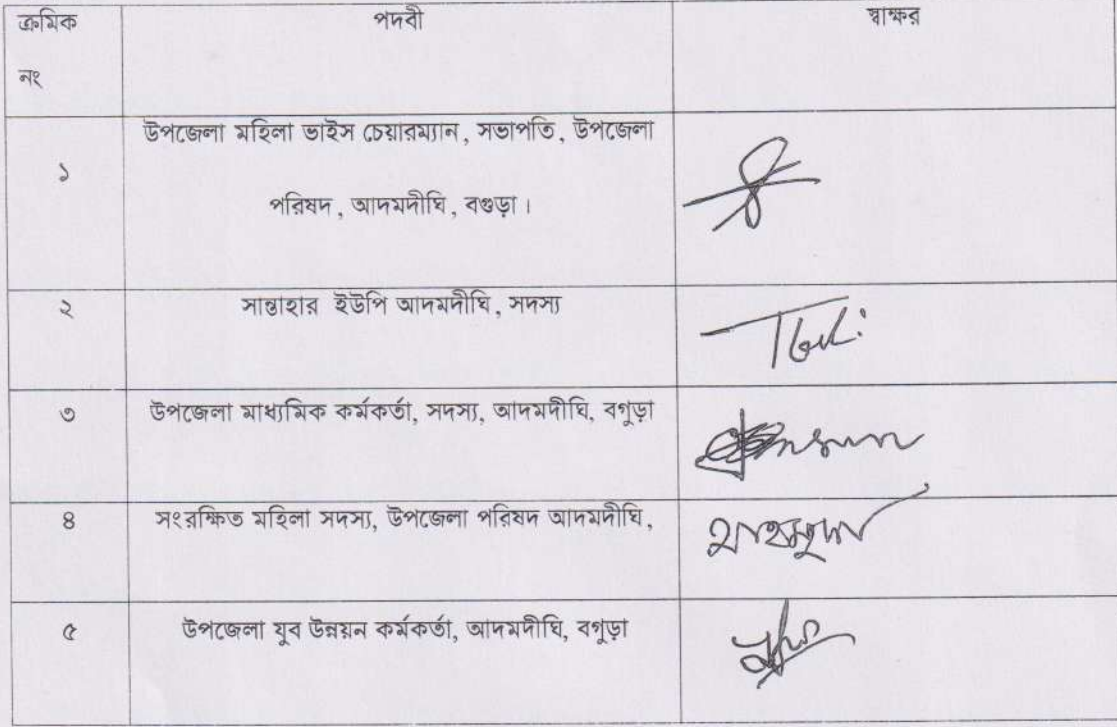 ক্রমিক পদবী স্বাক্ষর
নং
উপজেলা মহিলা ভাইস চেয়ারম্যান, সভাপতি, উপজেলা
১
পরিষদ, আদমদীঘি, বগুড়া।
২ সান্তাহার ইউপি আদমদীঘি, সদস্য
৩ উপজেলা মাধ্যমিক কর্মকর্তা, সদস্য, আদমদীঘি, বগুড়া
৪ সংরক্ষিত মহিলা সদস্য, উপজেলা পরিষদ আদমদীঘি,
৫ উপজেলা যুব উন্নয়ন কর্মকর্তা, আদমদীঘি, বগুড়া